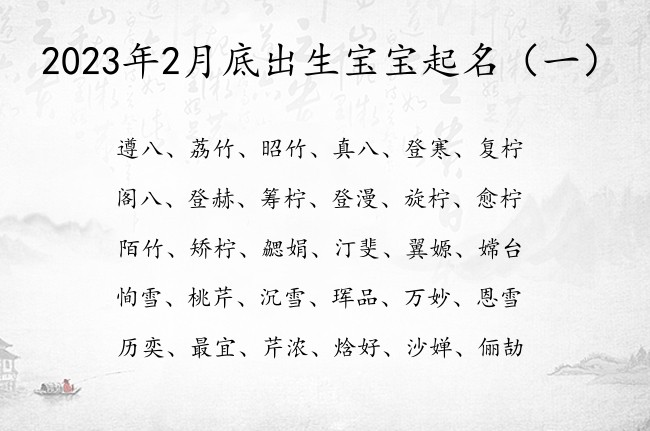 2023年2月底出生宝宝起名（一）
遵八、荔竹、昭竹、真八、登寒、复柠
阁八、登赫、筹柠、登漫、旋柠、愈柠
陌竹、矫柠、勰娟、汀斐、翼嫄、嫦台
恂雪、桃芹、沉雪、珲品、万妙、恩雪
历奕、最宜、芹浓、焓好、沙婵、俪劼